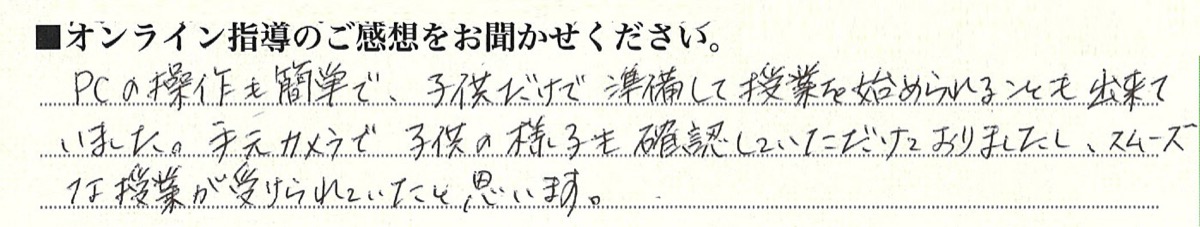 ■オンライン指導のご感想をお聞かせください。
PCの操作も簡単で、子供だけで準備して授業を始められることも出来て
いました。手元カメラで子供の様子も確認していただけておりましたし、スムーズ
な授業が受けられていたと思います。